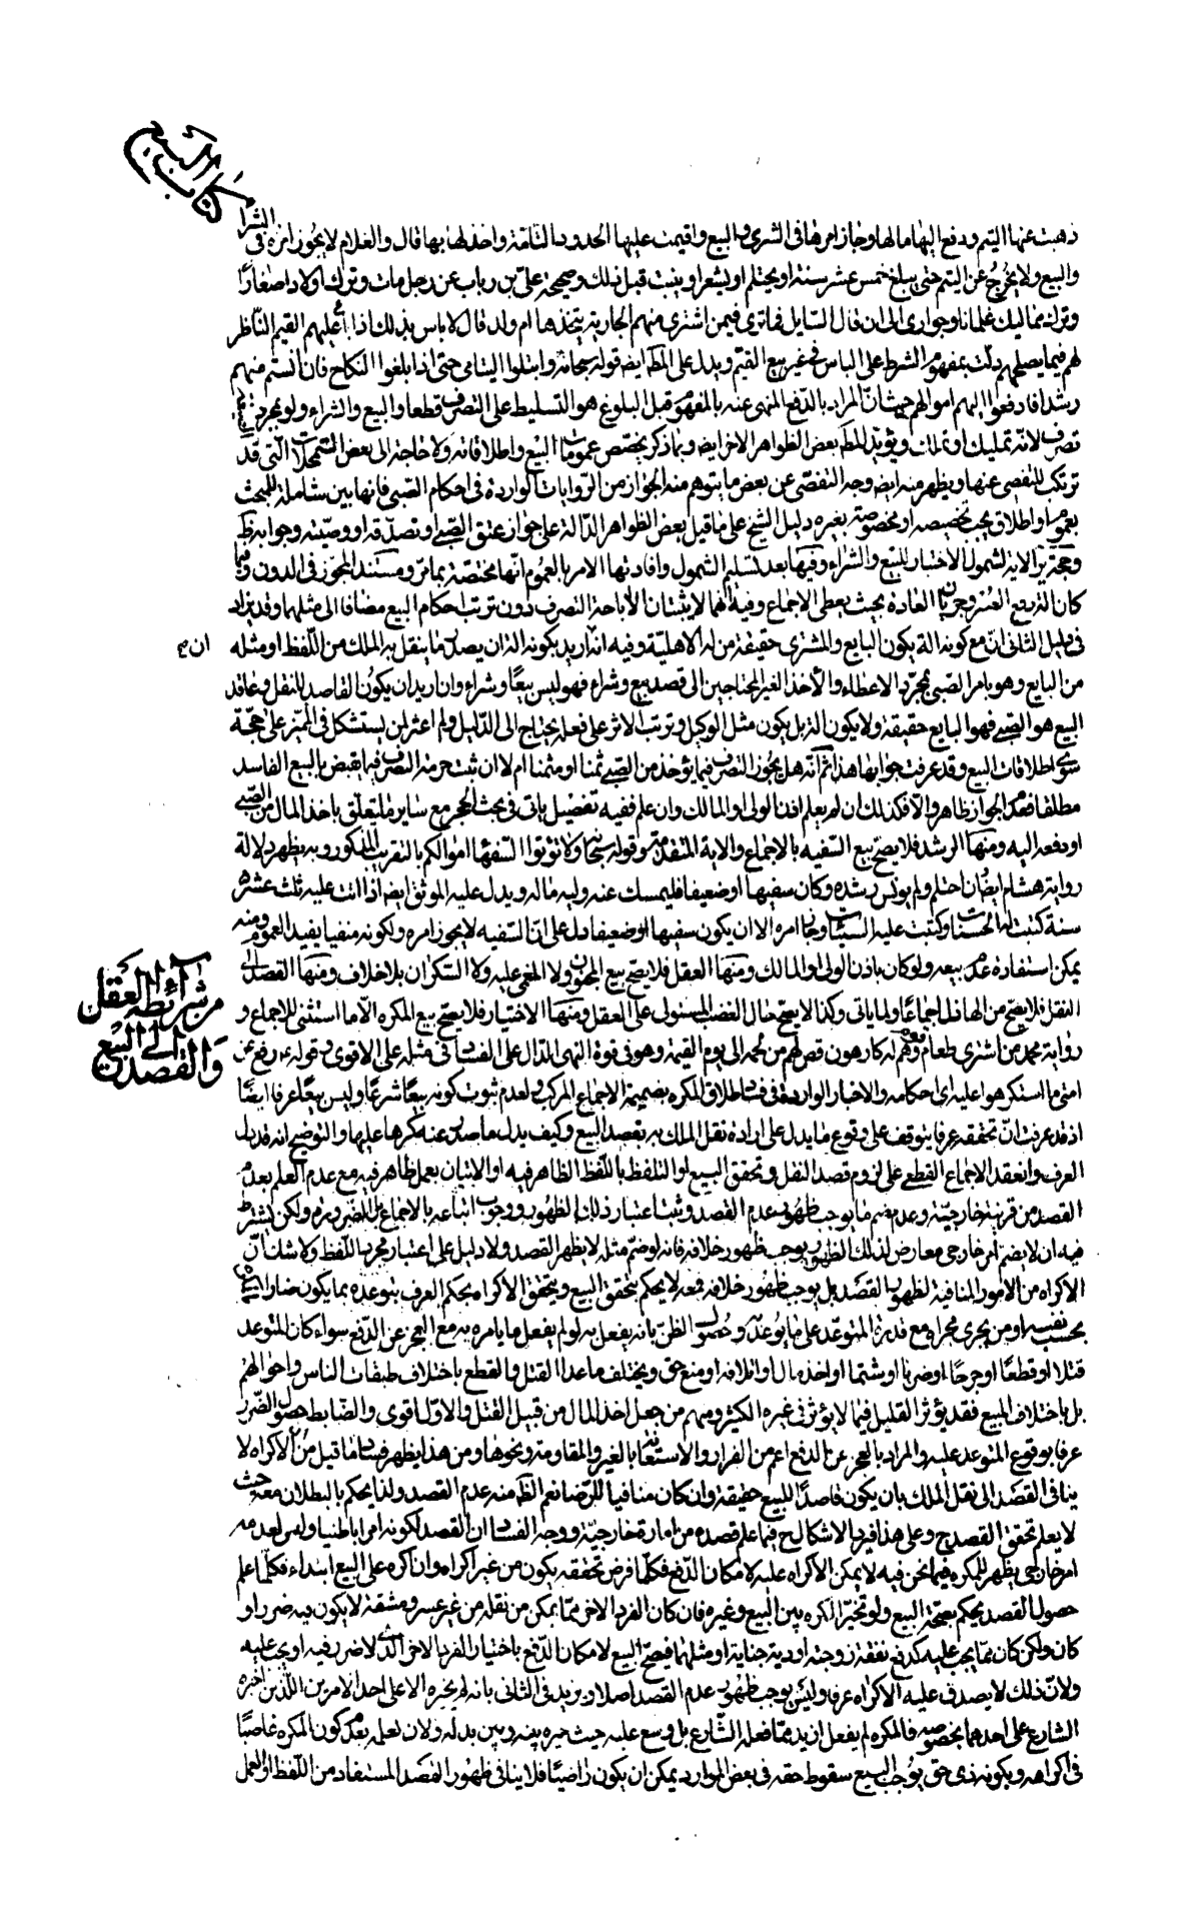 كتاب البيع
ذهبت عنها اليتم ودفع اليها مالها وجاز امرها فى الشرى والبيع واقيمت عليها الحدود التامة واخذ لها بها قال والغلام لا يجوز امره فى الشرا
والبيع ولا يخرج عن اليتم حتى يبلغ خمس عشر سنة او يحتلم او يشعر او ينبت قبل ذلك وصحيحة على بن رباب عن رجل مات وترك اولادا صغارا
وترك مماليك غلمانا وجوارى الى ان قال السايل فما ترى فيمن اشترى منهم الجارية يتخذها ام ولد قال لا باس بذلك اذا باع عليهم القيم الناظر
لهم فيما يصلحهم دلت بمفهوم الشرط على الباس فى غير بيع القيم ويدل على المط ايضه قوله سبحانه وابتلوا اليتامى حتى اذا بلغوا النكاح فان انستم منهم
رشدا فادفعوا اليهم اموالهم حيث ان المراد بالدفع المنهى عنه بالمفهوم قبل البلوغ هو التسليط على التصرف قطعا والبيع والشراء ولو بمجرد
تصرف لانه تمليك او تملك ويؤيد المط بعض الظواهر الاخر ايضه وبما ذكر يختص عمومات البيع واطلاقاته ولا حاجة الى بعض التمحلات التى قد
ترتكب للتفصى عنها ويظهر منه ايضه وجه التفصى عن بعض ما يتوهم منه الجواز من الروايات الواردة فى احكام الصبى فانها بين شاملة للمبحث
بعموم او اطلاق يجب تخصيصه او مخصوصة بغيره دليل الشيخ على ما قيل بعض الظواهر الدالة على جواز عتق الصبى وتصدقه ووصيته وجوابه ظ
وحجة الاية لشمول الاختبار للبيع والشراء وفيها بعد تسليم الشمول وافادتها الامر بالعموم انها مختصة بما مر ومستند المجوز فى الدون وفيما
كان الة رفع العسر وجريان العادة بحيث يعطى الاجماع وفيه انهما لا يثبتان الا اباحة التصرف دون ترتب احكام البيع مضافا الى مثلهما وقد يزاد
فى دليل الثانى ان مع كونه الة يكون البايع والمشترى حقيقة من له الاهلية وفيه انه اريد بكونه الة ان يصدر ما ينتقل به الملك من اللفظ او مثله
ان
من البايع وهو يامر الصبى بمجرد الاعطاء والاخذ الغير المحتاجين الى قصد بيع وشراء فهو ليس بيعا وشراء وان اريد ان يكون القاصد للنقل وعاقد
البيع هو الصبى فهو البايع حقيقة ولا يكون الة بل يكون مثل الوكيل وترتب الاثر على فعله يحتاج الى الدليل ولم اعثر لمن يستشكل فى المميز على حجة
سوى اطلاقات البيع وقد عرفت جوابها هذا ثم انه هل يجوز التصرف فيما يؤخذ من الصبى ثمنا او مثمنا ام لا ان ثبت حرمة التصرف فيما يقبض بالبيع الفاسد
مطلقا فعدم الجواز ظاهر والا فكذلك ان لم يعلم اذن الولى او المالك وان علم ففيه تفصيل ياتى فى بحث الحجر مع ساير ما يتعلق باخذ المال من الصبى
او دفعه اليه ومنها الرشد فلا يصح بيع السفيه بالاجماع والاية المتقدمة وقوله سبحانه ولا تؤتوا السفهاء اموالكم بالتقريب المذكور وبه يظهر دلالة
رواية هشام ايضا ان احتلم ولم يونس رشده وكان سفيها او ضعيفا فليمسك عنه وليه ماله ويدل عليه الموثق ايضه اذا اتت عليه ثلث عشرة
سنة كتبت له الحسنات وكتبت عليه السيئات وجاز امره الا ان يكون سفيها او ضعيفا دل على ان السفيه لا يجوز امره ولكونه منفيا يفيد العموم ومنه
يمكن استفادة عدم بيعه ولو كان باذن الولى او المالك ومنها العقل فلا يصح بيع المجنون ولا المغمى عليه ولا السكران بلا خلاف ومنها القصد الى
من شرائط العقل والقصد الى البيع
النقل فلا يصح من الهازل اجماعا ولما ياتى وكذا لا يصح حال الغضب المستولى على العقل ومنها الاختيار فلا يصح بيع المكره الا ما استثنى للاجماع و
رواية محمد من اشترى طعام قوم وهم له كارهون قص لهم من لحمه الى يوم القيمة وهو فى قوة النهى الدال على الفساد فى مثله على الاقوى وقوله ع رفع عن
امتى ما استكرهوا عليه اى احكامه والاخبار الواردة فى فساد طلاق المكره بضميمة الاجماع المركب ولعدم ثبوت كونه بيعا شرعا وليس بيعا عرفا ايضا
اذ قد عرفت ان تحققه عرفا يتوقف على وقوع ما يدل على ارادة نقل الملك به بقصد البيع وكيف يدل ما صدر عنه مكرها عليها والتوضيح انه قد دل
العرف وانعقد الاجماع القطعى على لزوم قصد النقل وتحقق البيع لو التلفظ باللفظ الظاهر فيه او الاتيان بعمل ظاهر فيه مع عدم العلم بعدم
القصد من قرينة خارجية وعدم ضم ما يوجب ظهور عدم القصد وثبت اعتبار ذلك الظهور ووجوب اتباعه بالاجماع بل الضرورة ولكن يشترط
فيه ان لا يضم امر خارجى معارض لذلك الظهور يوجب ظهور خلافه فانه لو ضم مثله لا يظهر القصد ولا دليل على اعتبار مجرد اللفظ ولا شك ان
الاكراه من الامور المنافية لظهور القصد بل يوجب ظهور خلافه فمعه لا يحكم بتحقق البيع ويتحقق الاكراه بحكم العرف بتوعده بما يكون ضارا له
بحسب نفسه او من يجرى مجراه مع قدرة المتوعد على ما يوعد به وحصول الظن بانه يفعل به لو لم يفعل ما يامره به مع العجز عن الدفع سواء كان المتوعد
قتلا او قطعا او جرحا او ضربا او شتما او اخذ مال او اتلافه او منع حق ويختلف ما عدا القتل والقطع باختلاف طبقات الناس واحوالهم
بل باختلاف المبيع فقد يؤثر القليل فيما لا يؤثر فى غيره الكثير ومنهم من جعل اخذ المال من قبيل القتل والاول اقوى والضابط حصول الضرر
عرفا بوقوع المتوعد عليه والمراد بالعجز عن الدفع اعم من الفرار والاستعانة بالغير والمقاومة ونحوها ومن هذا يظهر فساد ما قيل من ان الاكراه لا
ينافى القصد الى نقل الملك بان يكون قاصدا للبيع حقيقة وان كان منافيا للرضا نعم الظ منه عدم القصد ولذا يحكم بالبطلان معه حيث
لا يعلم تحقق القصد ح وعلى هذا فيرد الاشكال ح فيما علم قصده من امارة خارجية ووجه الفساد ان القصد لكونه امرا باطنيا وليس لعدمه
امر خارجى يظهر للمكره فيما نحن فيه لا يمكن الاكراه عليه لامكان الدفع فكلما فرض تحققه يكون من غير اكراه وان اكره على البيع ابتداء فكلما علم
حصول القصد يحكم بصحة البيع ولو تخير المكره بين البيع وغيره فان كان الفرد الاخر مما يمكن من نقله من غير عسر ومشقة لا يكون فيه ضرر او
كان ولكن كان مما يجب عليه كدفع نفقة زوجته او دية جناية او مثلهما فيصح البيع لامكان الدفع باختيار الفرد الاخر الذى لا ضرر فيه او يجب عليه
ولان ذلك لا يصدق عليه الاكراه عرفا وليس يوجب ظهور عدم القصد اصلا ويزيد فى الثانى بانه لم يخيره الا على احد الامرين اللذين اخبره
الشارع على احدهما بخصوصه فالمكره لم يفعل ازيد مما فعله الشارع بل وسع عليه حيث خيره بينه وبين بدله ولان لعله بعدم كون المكره غاصبا
فى اكراهه وبكونه ذى حق يوجب البيع سقوط حقه فى بعض الموارد يمكن ان يكون راضيا فلا ينافى ظهور القصد المستفاد من اللفظ او العمل